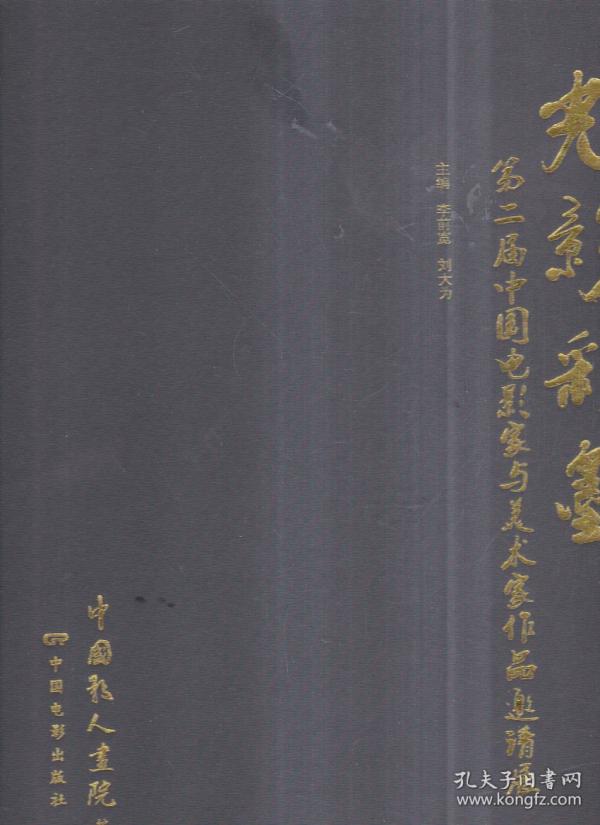 光影彩墨
第二届中国电影家与美术家作品邀请展
主编 李前宽 刘大为
中國影人畫院
中国电影出版社
孔夫子旧书网
www.kongfz.com